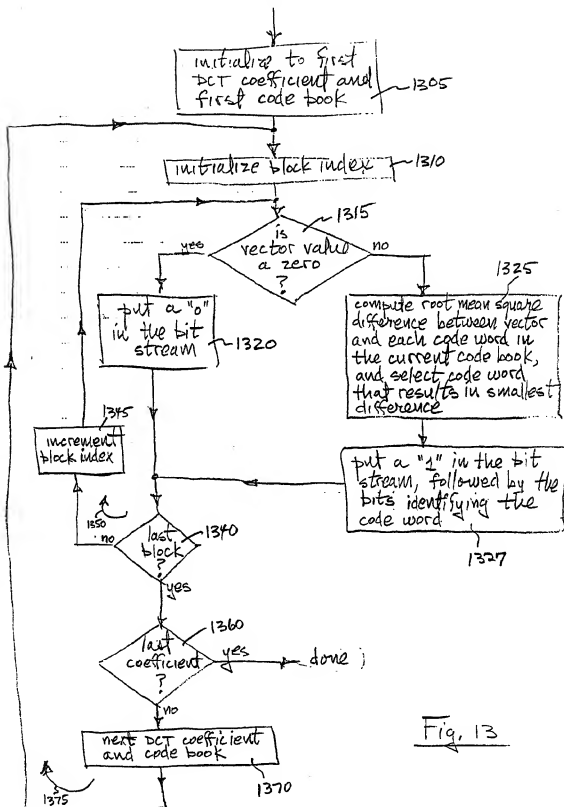 initialize to first
DCT coefficient and
first code book
1305
initialize block index
1310
1315
is
vector value
a zero
?
yes
no
put a "0"
in the bit
stream
1320
1325
compute root mean square
difference between vector
and each code word in
the current code book,
and select code word
that results in smallest
difference
1345
increment
block index
put a "1" in the bit
stream, followed by the
bits identifying the
code word
1327
1350
no
last
block
?
1340
yes
last
coefficient
?
1360
yes
done
no
next DCT coefficient
and code book
1370
1375
Fig. 13